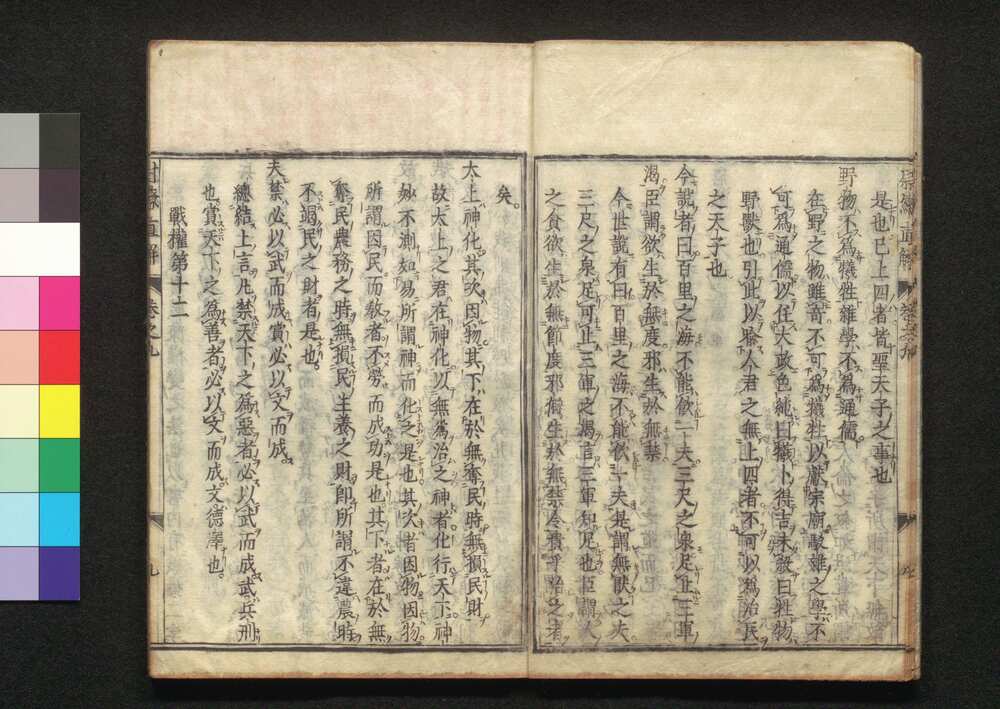 是也已上四者皆聖天子之事也
野物不為犧牲雜學不為通儒
在野之物雖奇不可為犧牲以獻宗廟駁雜之學不
可為通儒以任大政色純曰犧卜得吉未殺曰牲物
野獸也引此以喻人君之無上四者不可以為治民
之天子也
今說者曰百里之海不能飲一夫三尺之泉足止三軍
渴臣謂欲生於無度邪生於無禁
今世說有曰百里之海不能飲一夫是謂無厭之夫
三尺之泉足可止三軍之渴言三軍知足也臣謂人
之貪欲生於無節度邪僻生於無禁令積乎治之者
矣
太上神化其次因物其下在於無奪民時無損民財
故太上之君在神化以無為治之神者化行天下神
妙不測如易所謂神而化之是也其次者因物因物
所謂因民而教者不勞而成功是也其下者在於無
奪民農務之時無損民生養之財即所謂不違農時
不竭民之財者是也
夫禁必以武而成賞必以文而成
總結上言凡禁天下之為惡者必以武而成武兵刑
也賞天下之為善者必以文而成文德澤也
戰權第十二
直解 卷之九 九